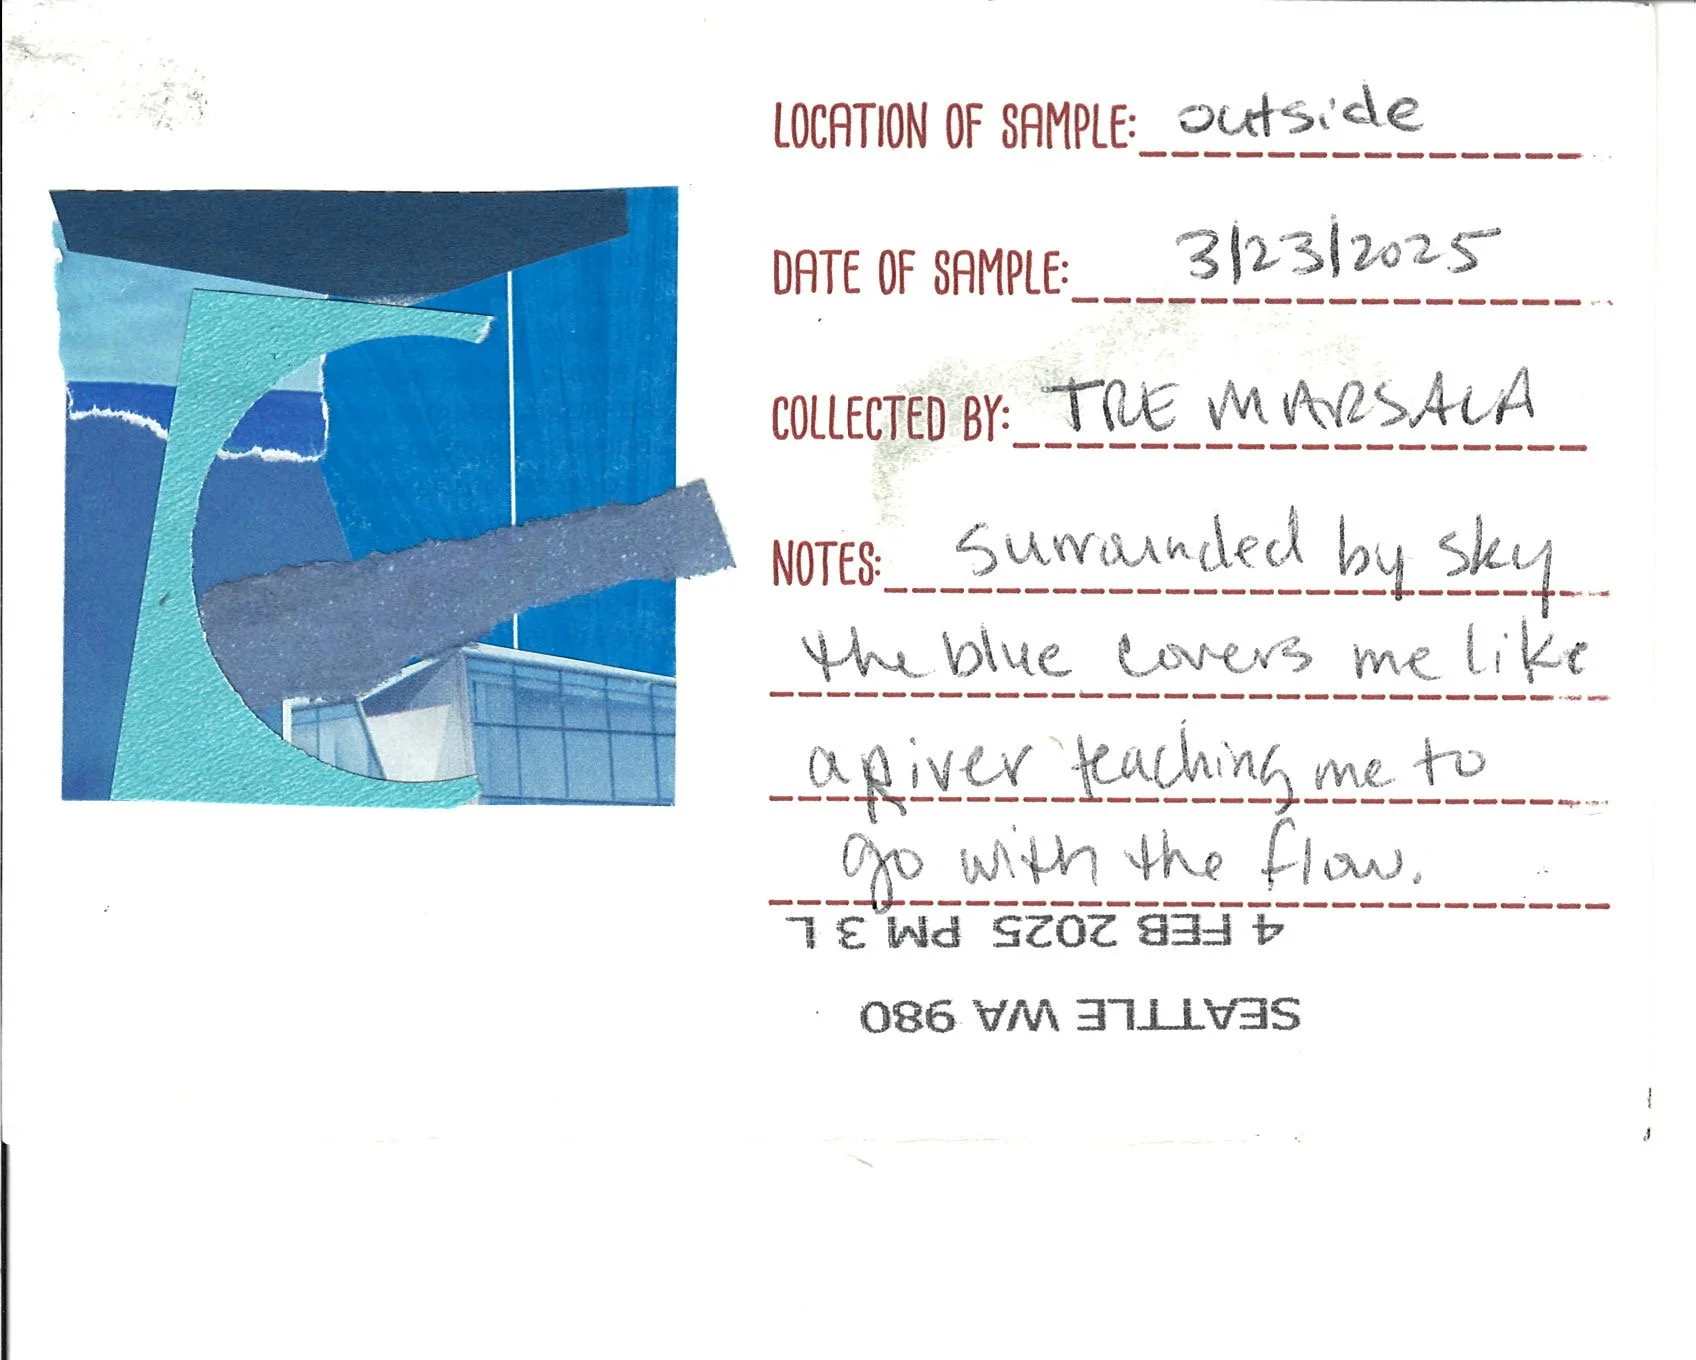 LOCATION OF SAMPLE: outside
DATE OF SAMPLE: 3/23/2025
COLLECTED BY: TRE MARSALA
NOTES: surrounded by sky
the blue covers me like
a river teaching me to
go with the flow.
SEATTLE WA 980
4 FEB 2025 PM 3 L